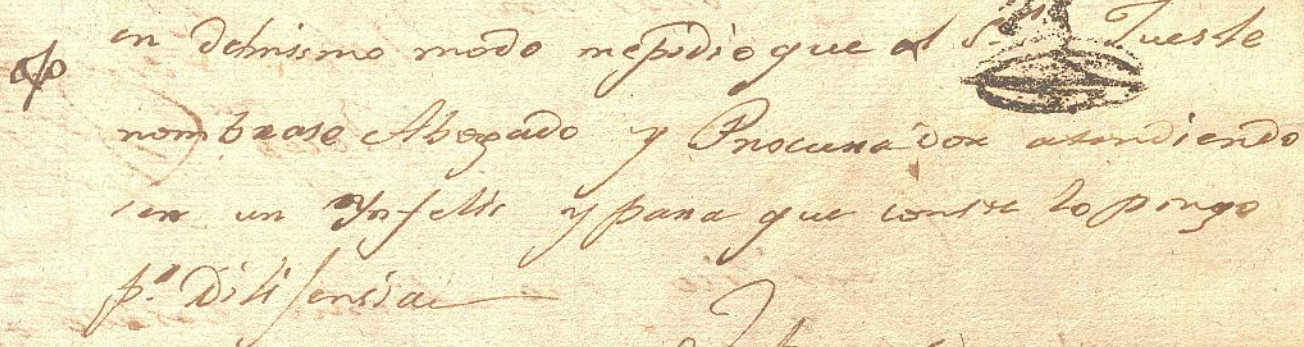 en Delmismo modo mepidio que el S.or Jues le
nombrase Abogado y Procurador atendiendo
ser un Ynfelis y para que conste lo pongo
p.r Dilijensia